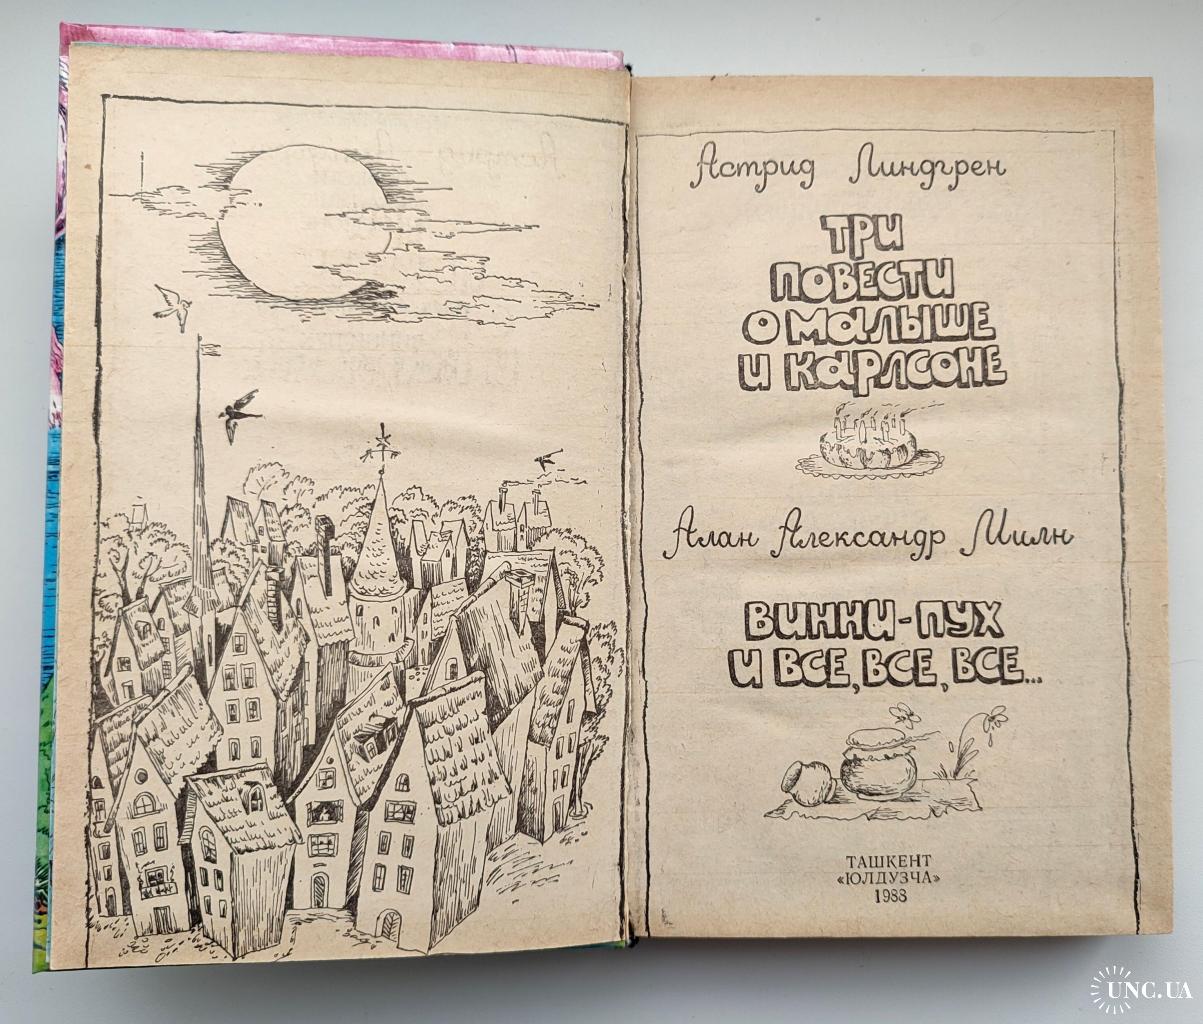 Астрид Линдгрен
ТРИ
ПОВЕСТИ
О МАЛЫШЕ
И КАРЛСОНЕ
Алан Александр Милн
ВИННИ-ПУХ
И ВСЕ, ВСЕ, ВСЕ...
ТАШКЕНТ
«ЮЛДУЗЧА»
1988
UNC.UA